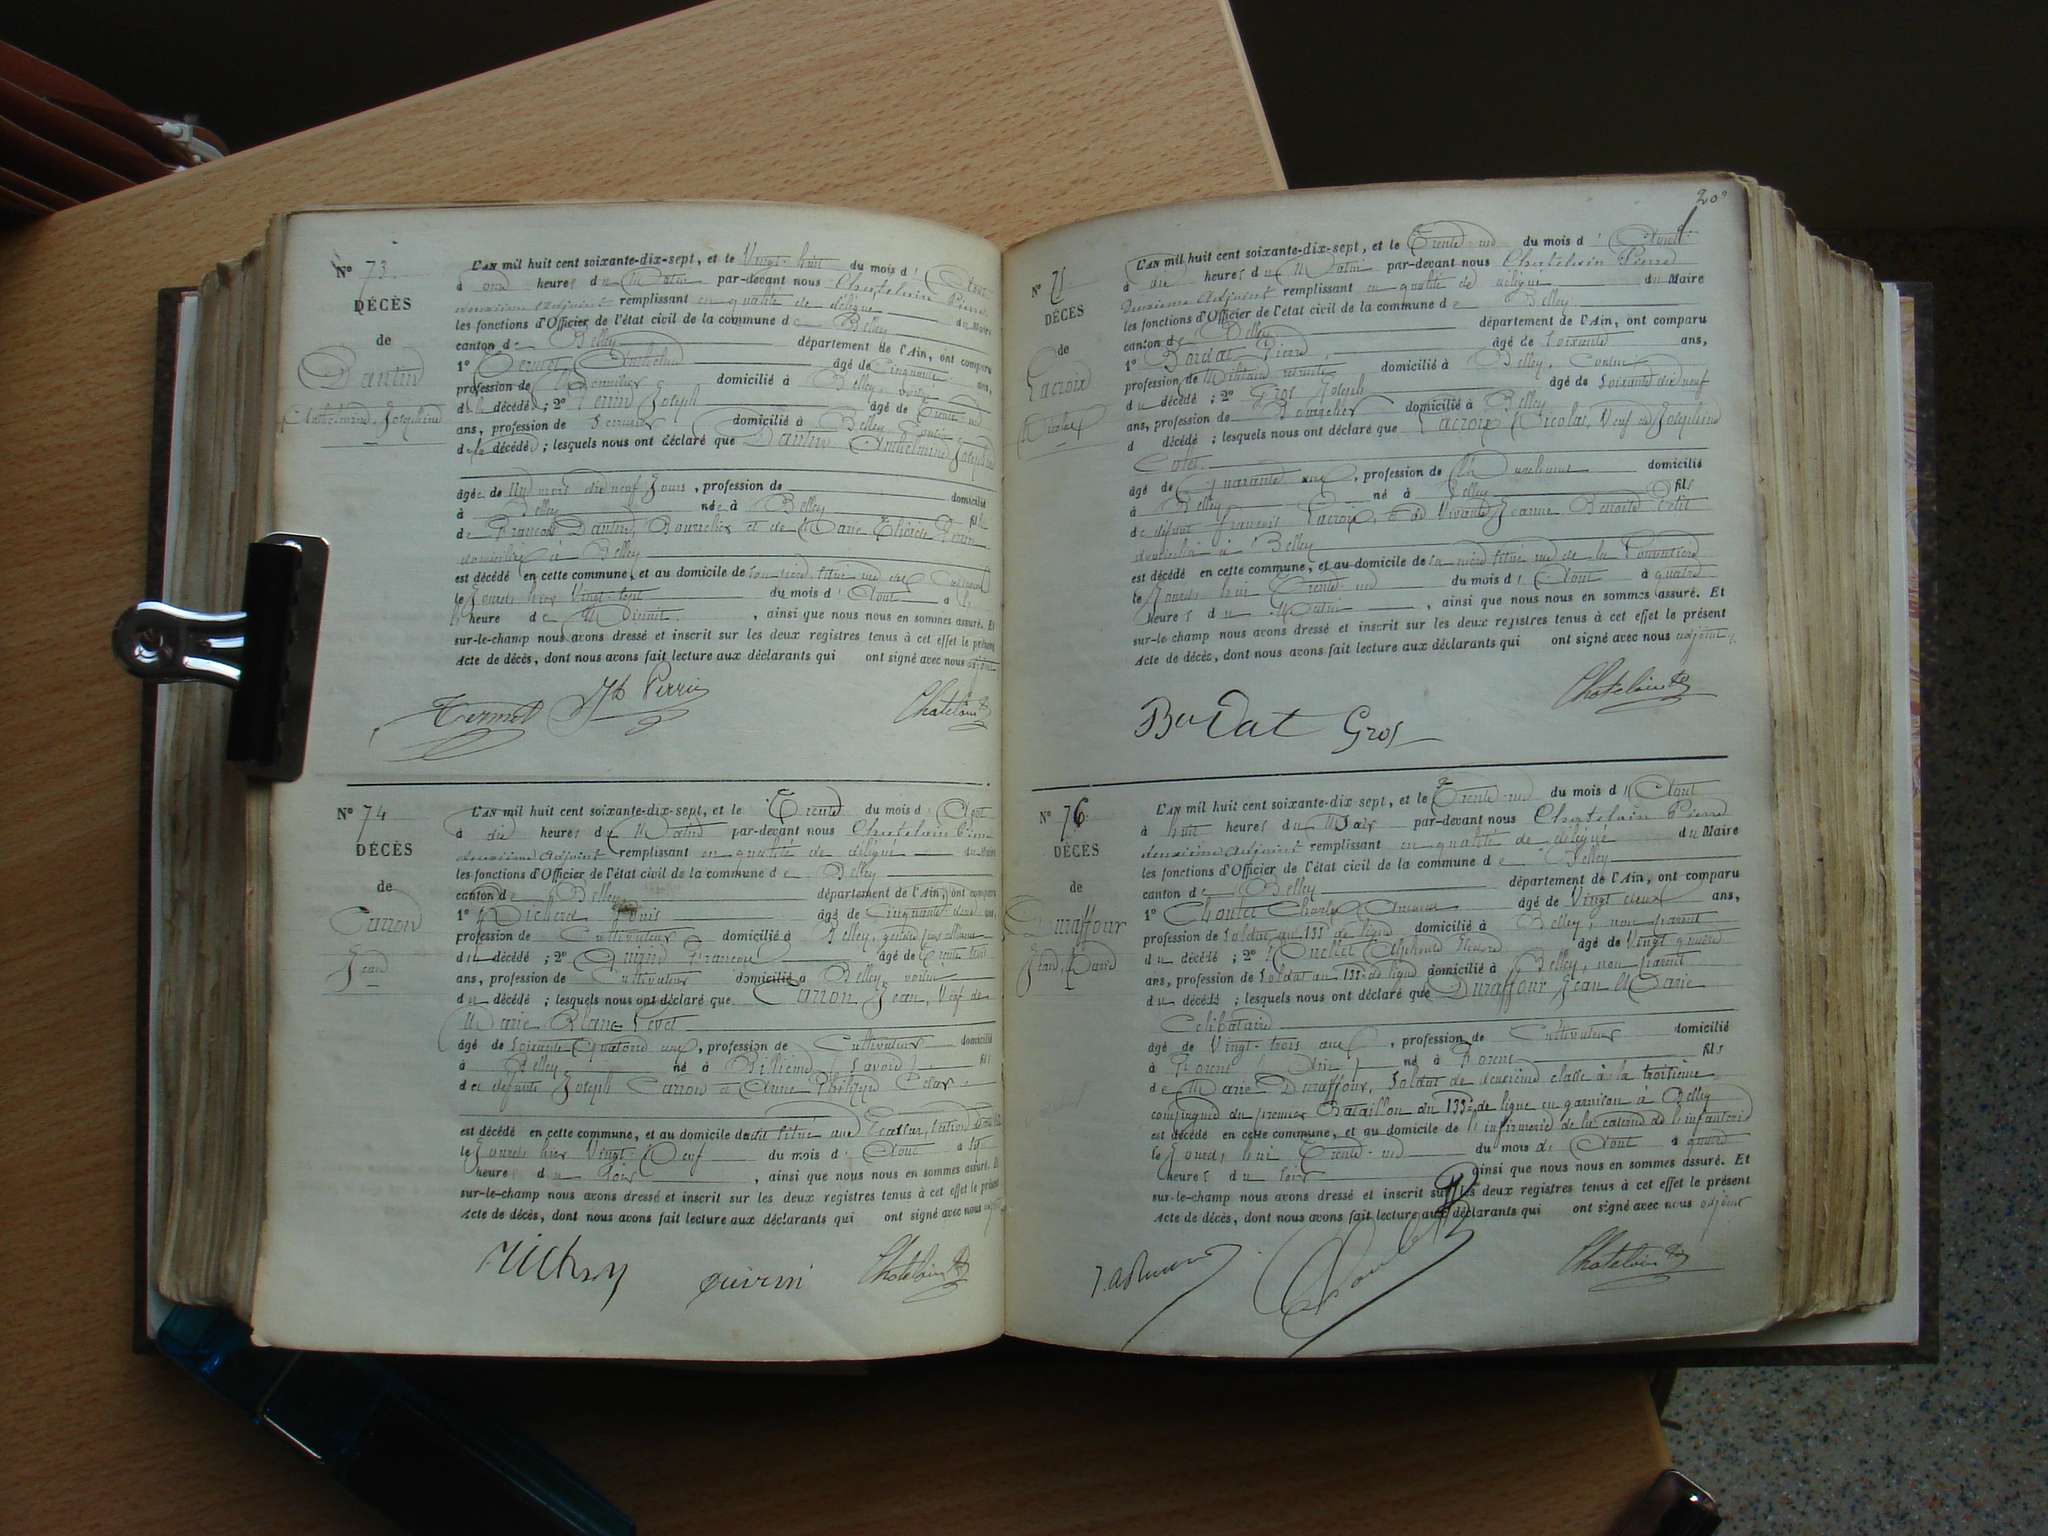 N° 73.
DÉCÈS
de
Dantin
Anthelmine Josephine
L'AN mil huit cent soixante-dix-sept, et le Vingt-huit du mois d' Aout
à onze heures du Matin par-devant nous Chatelain Pierre
deuxième Adjoint remplissant en qualité de délégué du Maire
les fonctions d'Officier de l'état civil de la commune de Belley
canton de Belley département de l'Ain, ont comparu
1° Anthelme âgé de Cinquante ans,
profession de domicilié à Belley, voisin
de la décédée ; 2° Perrin Joseph âgé de trente
ans, profession de domicilié à Belley
de la décédée ; lesquels nous ont déclaré que Dantin Anthelmine Josephine
âgée de Un mois dix neuf Jours, profession de domicilié
à Belley née à Belley fille
de François Dantin, Bourrelier et de Marie Thérèse Perrin
domiciliés à Belley
est décédé en cette commune, et au domicile de son père, situé rue
le Jourd, hier Vingt-sept du mois d' Aout à
heure de Minuit, ainsi que nous nous en sommes assuré. Et
sur-le-champ nous avons dressé et inscrit sur les deux registres tenus à cet effet le présent
Acte de décès, dont nous avons fait lecture aux déclarants qui ont signé avec nous adjoint
Jh Perrin Chatelain
N° 74
DÉCÈS
de
Carron
Jean
L'AN mil huit cent soixante-dix-sept, et le Trente du mois d' Aout
à dix heures du Matin par-devant nous Chatelain Pierre
deuxième Adjoint remplissant en qualité de délégué du Maire
les fonctions d'Officier de l'état civil de la commune de Belley
canton de Belley département de l'Ain, ont comparu
1° âgé de Cinquante deux ans,
profession de Cultivateur domicilié à Belley, gendre
du décédé ; 2° François âgé de trente trois
ans, profession de Cultivateur domicilié à Belley voisin
du décédé ; lesquels nous ont déclaré que Carron Jean, Veuf de
Marie
âgé de soixante Quatorze ans, profession de Cultivateur domicilié
à Belley né à Billième (Savoie) fils
des défunts Joseph Carron et Anne
est décédé en cette commune, et au domicile situé aux
le Jourd, hier Vingt-Neuf du mois d' Aout à sept
heures du soir, ainsi que nous nous en sommes assuré. Et
sur-le-champ nous avons dressé et inscrit sur les deux registres tenus à cet effet le présent
Acte de décès, dont nous avons fait lecture aux déclarants qui ont signé avec nous
Chatelain
203
N° 75
DÉCÈS
de
Lacroix
Nicolas
L'AN mil huit cent soixante-dix-sept, et le Trente-un du mois d' Aout
à dix heures du Matin par-devant nous Chatelain Pierre
deuxième Adjoint remplissant en qualité de délégué du Maire
les fonctions d'Officier de l'état civil de la commune de Belley
canton de Belley département de l'Ain, ont comparu
1° Bordat Pierre âgé de soixante ans,
profession de Militaire retraité domicilié à Belley, Cousin
du décédé ; 2° Gros Joseph âgé de soixante dix neuf
ans, profession de Bourrelier domicilié à Belley
d décédé ; lesquels nous ont déclaré que Lacroix Nicolas, Veuf de Josephine
âgé de Quarante ans, profession de domicilié
à Belley né à Belley fils
de défunt François Lacroix, et de Vivante Jeanne Benoite
domiciliée à Belley
est décédé en cette commune, et au domicile de sa mère situé rue de la
le Jourd, hui Trente-un du mois d' Aout à quatre
heures du Matin, ainsi que nous nous en sommes assuré. Et
sur-le champ nous avons dressé et inscrit sur les deux registres tenus à cet effet le présent
Acte de décès, dont nous avons fait lecture aux déclarants qui ont signé avec nous adjoint
Chatelain
Bordat Gros
N° 76
DÉCÈS
de
Duraffour
Jean, Marie
L'AN mil huit cent soixante-dix-sept, et le Trente-un du mois d' Aout
à huit heures du soir par-devant nous Chatelain Pierre
deuxième Adjoint remplissant en qualité de délégué du Maire
les fonctions d'Officier de l'état civil de la commune de Belley
canton de Belley département de l'Ain, ont comparu
1° Charles âgé de Vingt deux ans,
profession de Soldat au 133e de ligne domicilié à Belley, non parent
du décédé ; 2° Alphonse âgé de Vingt quatre
ans, profession de Soldat au 133e de ligne domicilié à Belley, non parent
du décédé ; lesquels nous ont déclaré que Duraffour Jean Marie
Célibataire
âgé de Vingt-trois ans, profession de Cultivateur domicilié
à (Ain) né à fils
de Marie Duraffour, Soldat de deuxième classe à la troisième
compagnie du premier Bataillon du 133e de ligne en garnison à Belley
est décédé en cette commune, et au domicile de l'infirmerie de la caserne de l'infanterie
le Jourd, hui Trente-un du mois de Aout à quatre
heures du soir ainsi que nous nous en sommes assuré. Et
sur-le-champ nous avons dressé et inscrit sur les deux registres tenus à cet effet le présent
Acte de décès, dont nous avons fait lecture aux déclarants qui ont signé avec nous adjoint
Chatelain